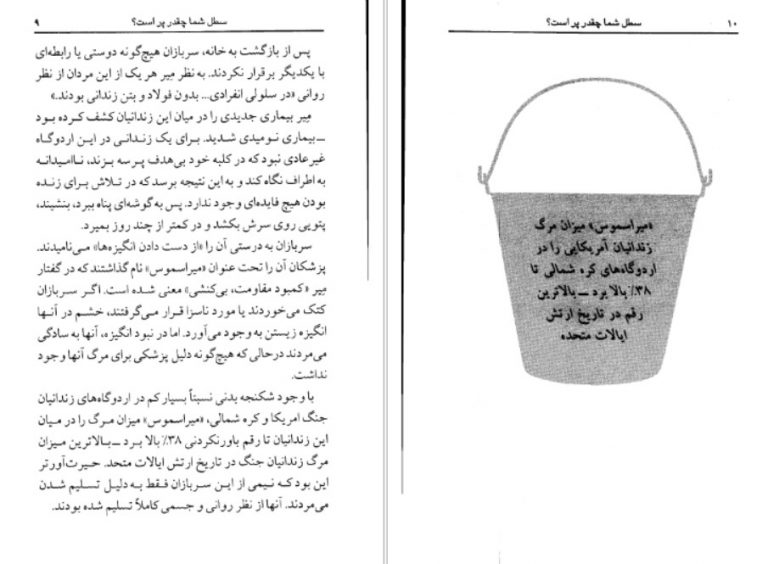 سطل شما چقدر پر است؟ ۹
پس از بازگشت به خانه، سربازان هیچ‌گونه دوستی یا رابطه‌ای
با یکدیگر برقرار نکردند. به نظر مِیر هر یک از این مردان از نظر
روانی «در سلولی انفرادی... بدون فولاد و بتن زندانی بودند.»
مِیر بیماری جدیدی را در میان این زندانیان کشف کرده بود
ــ بیماری نومیدی شدید. برای یک زندانی در این اردوگاه
غیرعادی نبود که در کلبه خود بی‌هدف پرسه بزند، ناامیدانه
به اطراف نگاه کند و به این نتیجه برسد که در تلاش برای زنده
بودن هیچ فایده‌ای وجود ندارد. پس به گوشه‌ای پناه ببرد، بنشیند،
پتویی روی سرش بکشد و در کمتر از چند روز بمیرد.
سربازان به درستی آن را «از دست دادن انگیزه‌ها» می‌نامیدند.
پزشکان آن را تحت عنوان «میراسموس» نام گذاشتند که در گفتار
مِیر «کمبود مقاومت، بی‌کنشی» معنی شده است. اگر سربازان
کتک می‌خوردند یا مورد ناسزا قرار می‌گرفتند، خشم در آنها
انگیزه زیستن به وجود می‌آورد. اما در نبود انگیزه، آنها به سادگی
می‌مردند درحالی که هیچ‌گونه دلیل پزشکی برای مرگ آنها وجود
نداشت.
با وجود شکنجه بدنی نسبتاً بسیار کم در اردوگاه‌های زندانیان
جنگ امریکا و کره شمالی، «میراسموس» میزان مرگ را در میان
این زندانیان تا رقم باورنکردنی ۳۸٪ بالا برد ــ بالاترین میزان
مرگ زندانیان جنگ در تاریخ ارتش ایالات متحد. حیرت‌آورتر
این بود که نیمی از این سربازان فقط به دلیل تسلیم شدن
می‌مردند. آنها از نظر روانی و جسمی کاملاً تسلیم شده بودند.
۱۰ سطل شما چقدر پر است؟
«میراسموس» میزان مرگ
زندانیان آمریکایی را در
اردوگاه‌های کره شمالی تا
۳۸٪ بالا برد ــ بالاترین
رقم در تاریخ ارتش
ایالات متحده